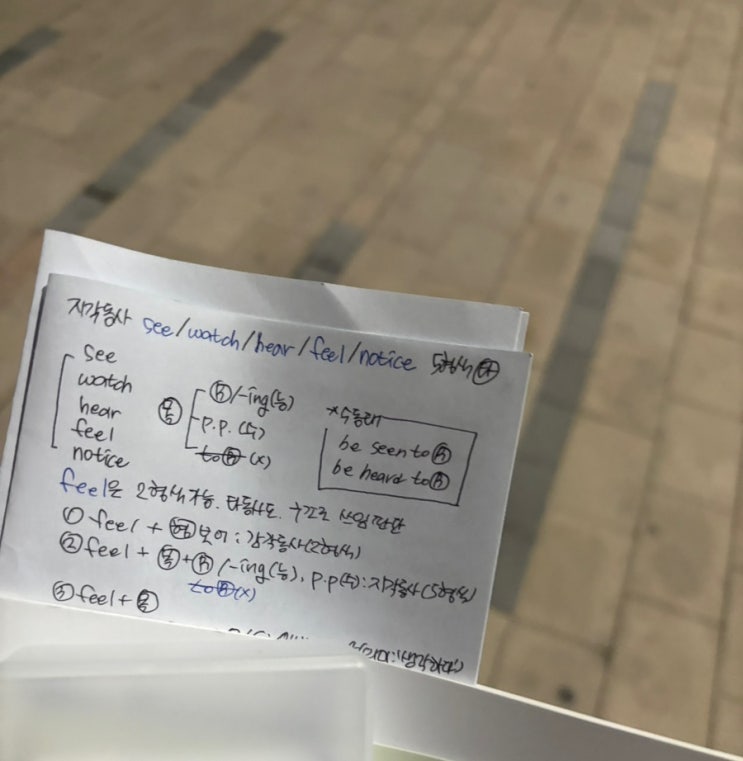 지각동사 see/watch/hear/feel/notice 5형식 ㉧
see
watch
hear
feel
notice
㉲ Ⓡ/-ing(능)
p.p.(수)
toⓇ(x)
*수동태
be seen to Ⓡ
be heard to Ⓡ
feel은 2형식 가능. 타동사도. 구조로 쓰임 판단
① feel + 형 보어 : 감각동사(2형식)
② feel + 목 + Ⓡ/-ing(능), p.p(수) : 지각동사(5형식)
toⓇ(x)
③ feel + 목
의미:'생각하다')